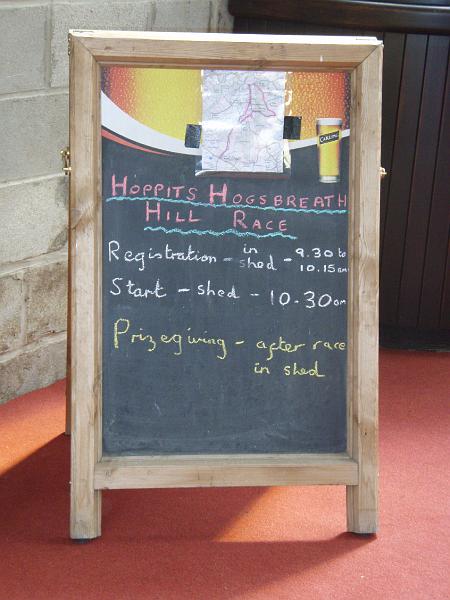 CARLING
HOPPITS HOGSBREATH
HILL RACE
Registration - in shed - 9.30 to 10.15am
Start - shed - 10.30am
Prizegiving - after race
in shed